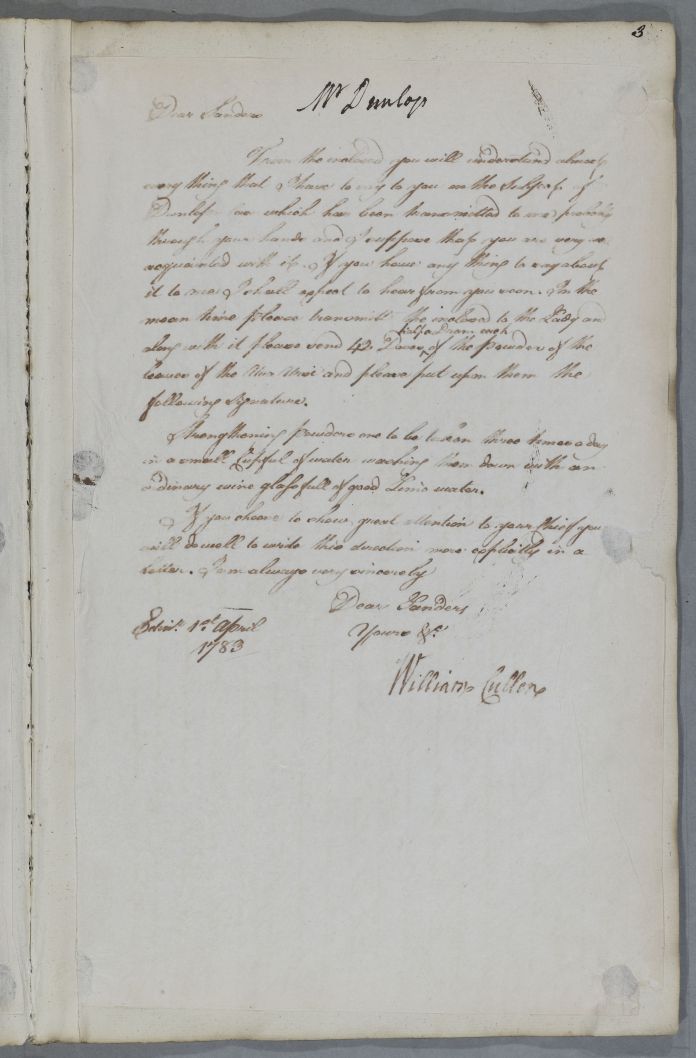 3
Mr Dunlop
Dear Sanders
From the inclosed you will understand almost
every thing that I have to say to you on the Subject of
Dunlop's case which has been transmitted to me probably
through your hands and I suppose that you are very we
acquainted with it. If you have any thing to say about
it to me I shall expect to hear from you soon. In the
mean time please transmitt the inclosed to the Lady and
half a Dram each
along with it please send 42 Doses of the powder of the
leaves of the Uva Ursi and please put upon them the
following Signature.
Strengthening powders one to be taken three times a day
in a small Cupful of water washing them down with an
ordinary wine glassfull of good Lime water.
If you choose to show great attention to your you
will do well to write this direction more explicitly in a
letter. I am always very sincerely
Dear Sanders
Edinr. 1st April
Yours &c
1783
William Cullen